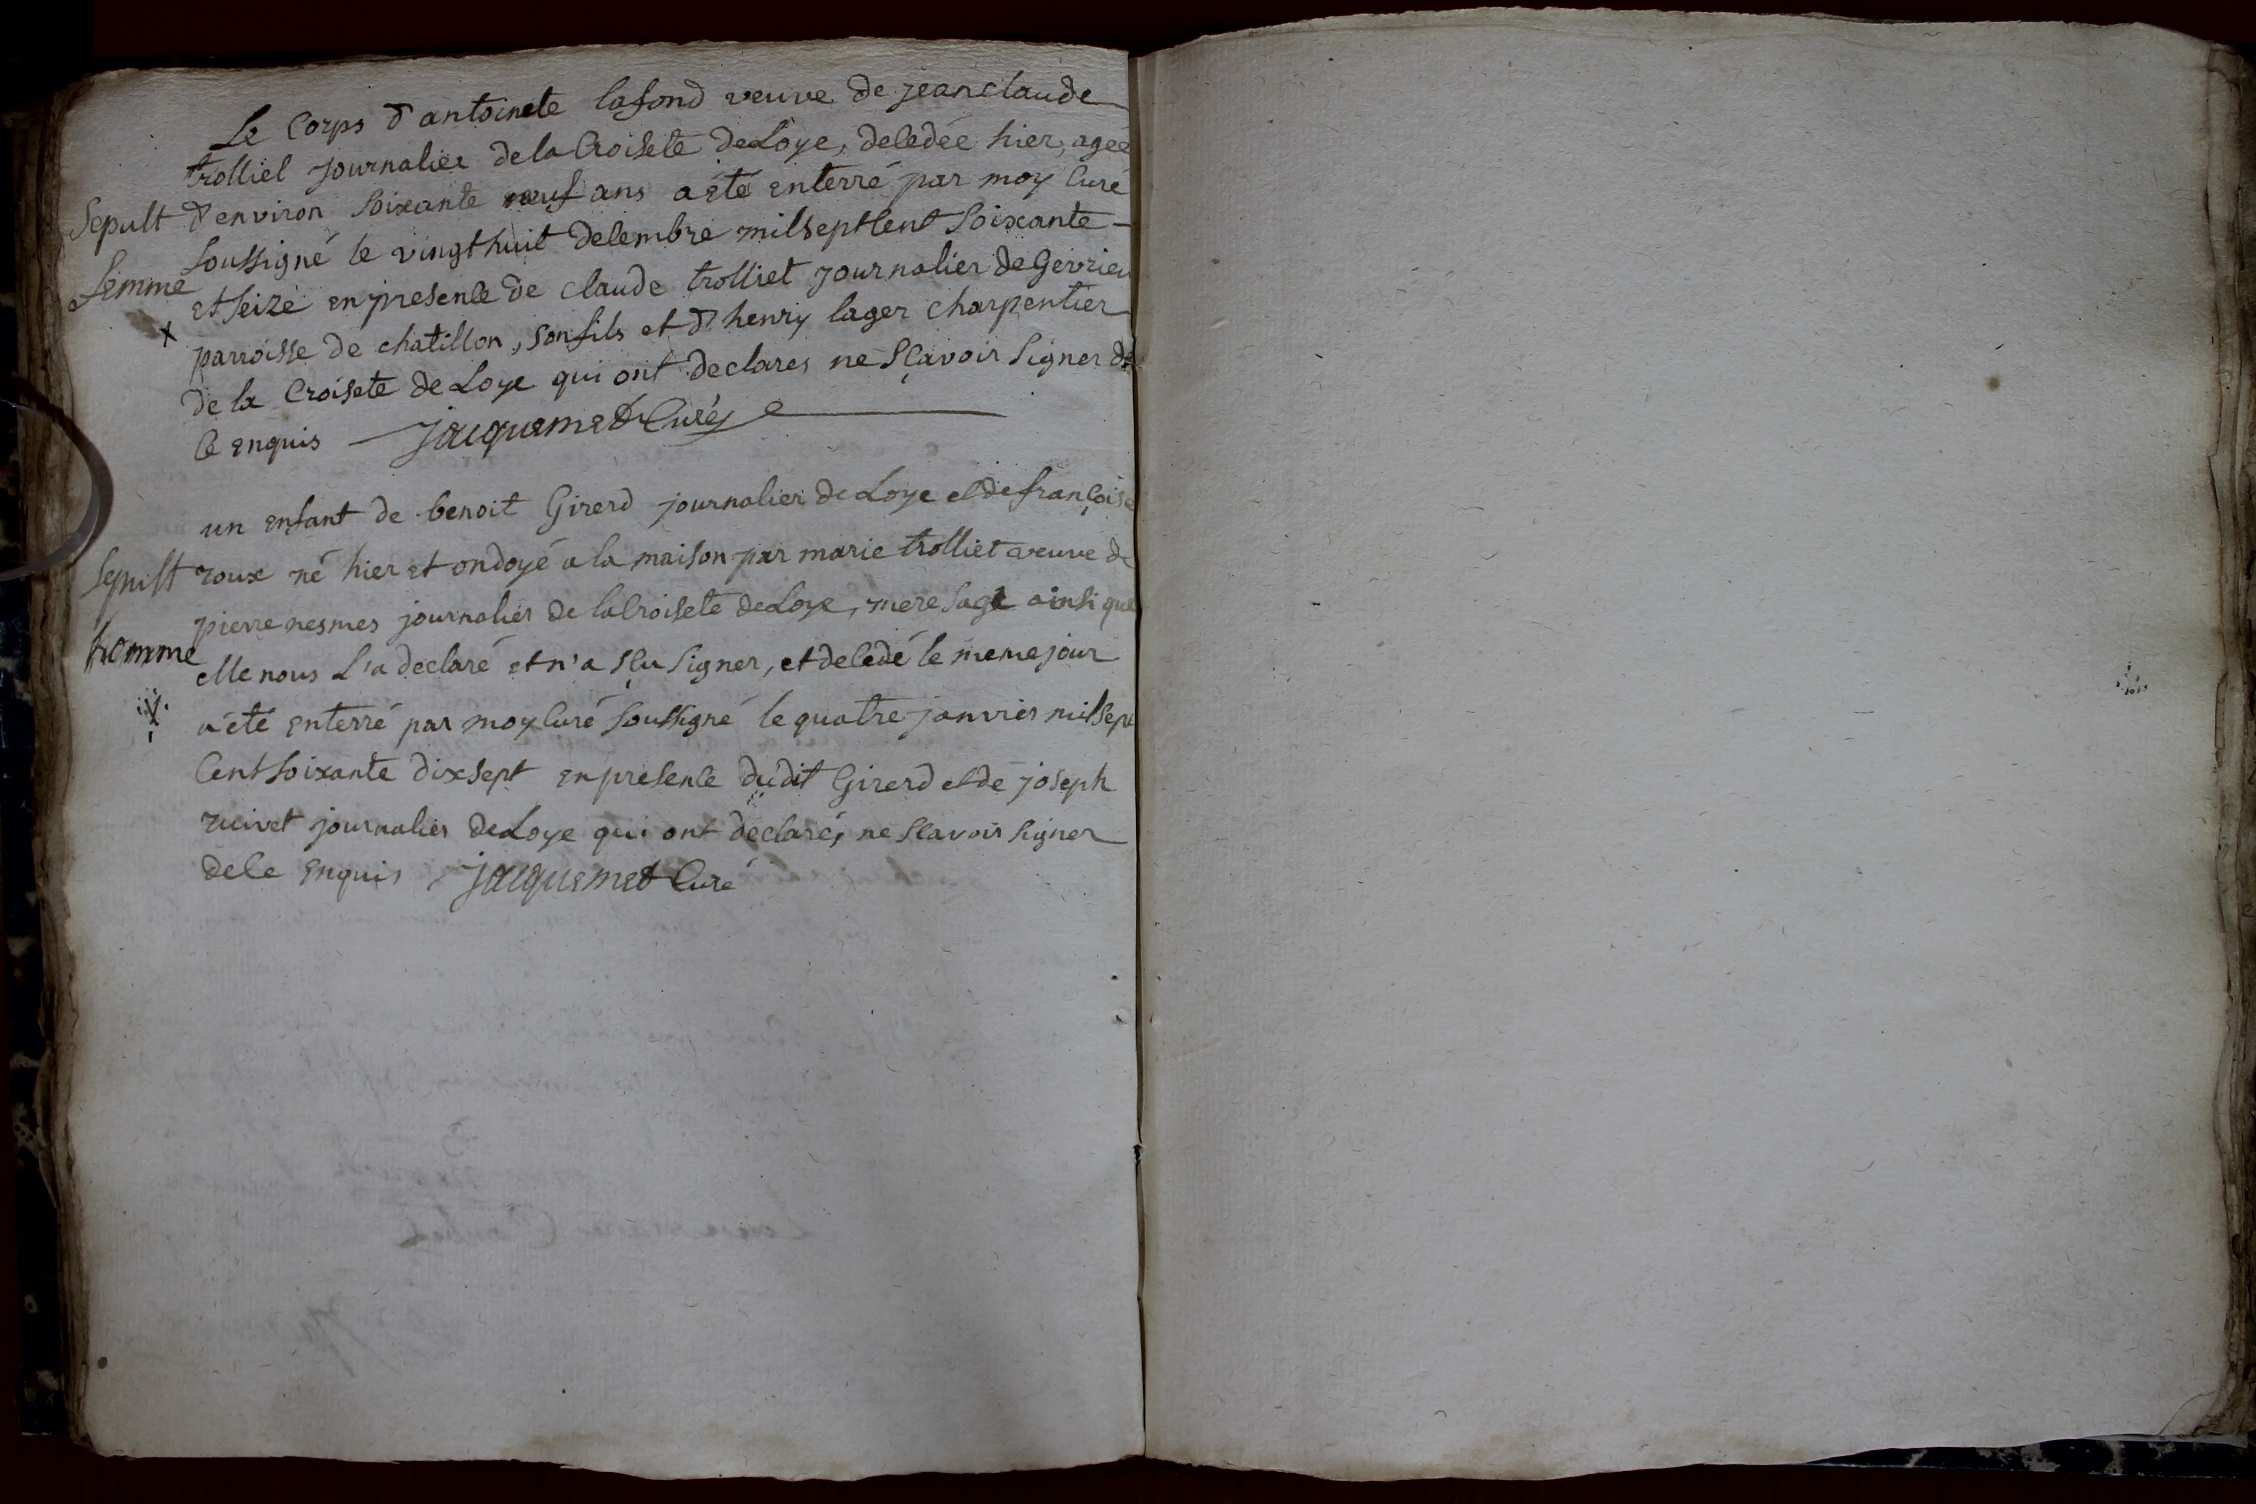 Le Corps d'antoinete lafond veuve de jeanclaude
trolliet journalier de la Croisete de Loye, decedée hier, agée
Sepult d'environ soixante neuf ans a été enterré par moy Curé
soussigné le vingt huit decembre mil sept cent soixante
femme et seize en presence de claude trolliet journalier de Gevrieu
parroisse de chatillon, son fils et d'henry lager charpentier
de la Croisete de Loye qui ont declares ne sçavoir signer de
ce enquis jacquemet Curé
un enfant de benoit Girerd journalier de Loye et de françoise
Sepult roux né hier et ondoyé a la maison par marie trolliet veuve de
pierre nesmes journalier de la Croisete de Loye, mere sage ainsi que
homme elle nous l'a declaré et n'a sçu signer, et decedé le meme jour
a été enterré par moy Curé soussigné le quatre janvier mil sept
Cent soixante dix sept en presence dudit Girerd et de joseph
journalier de Loye qui ont declarés ne scavoir signer
de ce enquis jacquemet Curé